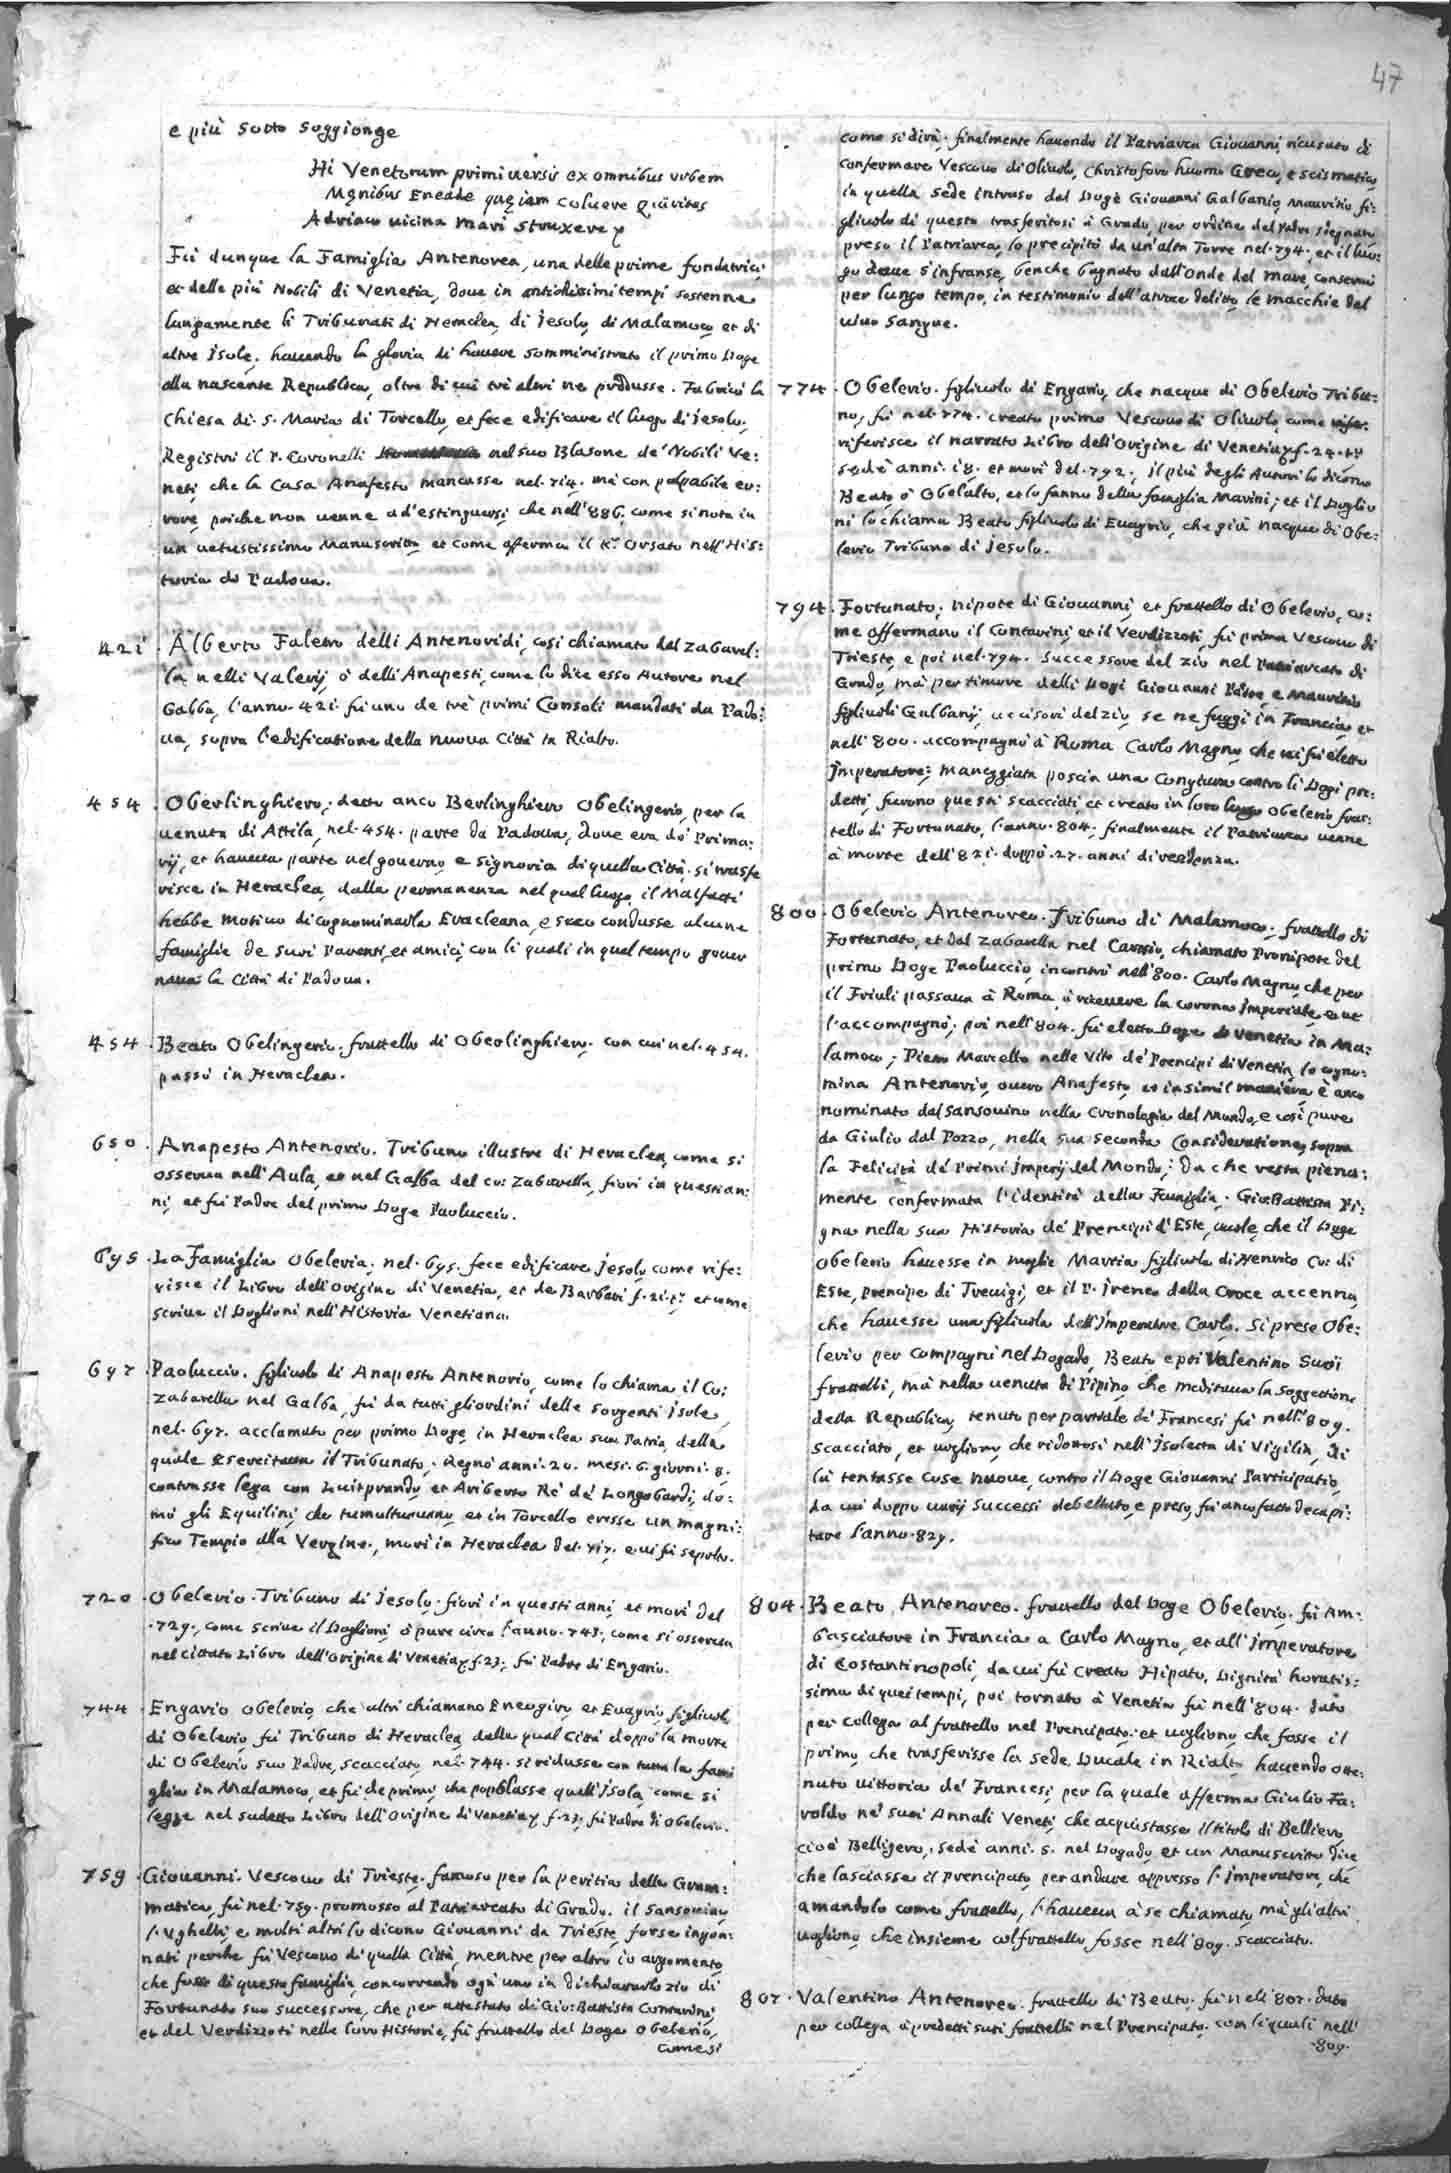 47
e più sotto soggionge
Hi Venetorum primi versis ex omnibus urbem
Manibus Eneade quoniam coluere quirites
Adriaco uicina mari struxere
Fù dunque la Famiglia Antenorea, una delle prime fondatrici
et delle più Nobili di Venetia, doue in antichissimi tempi sostenne
lungamente li Tribunati di Heraclea, di Jesolo, di Malamoco, et di
altre Isole, hauendo la gloria di hauere somministrato il primo Doge
alla nascente Republica, oltre di cui trè altri ne produsse. Fabricò la
Chiesa di S. Maria di Torcello, et fece edificare il luogo di Jesolo.
Registrò il P. Coronelli nel suo Blasone de' Nobili Ve:
neti, che la Casa Anafesto mancasse nel 714. mà con palpabile er:
rore, poiche non uenne ad'estinguersi, che nell'886. come si nota in
un uetustissimo Manuscritto et come afferma il Kr. Orsato nell'His:
toria di Padoua.
421. Alberto Faletro delli Antenoridi, così chiamato dal Zabarel:
la nelli Valerij ò delli Anapesti, come lo dice esso Autore nel
Galba, l'anno 421. fù uno de trè primi Consoli mandati da Pado:
ua, sopra l'edificatione della nuoua Città in Rialto.
454. Oberlinghiero, detto anco Berlinghiero Obelingerio, per la
uenuta di Attila, nel 454. parte da Padoua, doue era de' Prima:
rij, et haueua parte nel gouerno e signoria di quella Città. si trasfe
risce in Heraclea, dalla permanenza nel qual luogo, il Malfatti
hebbe motiuo di cognominarla Eracleana, e seco condusse alcune
famiglie de suoi Parenti, et amici, con li quali in quel tempo gouer
naua la Città di Padoua.
454. Beato Obelingerio. frattello di Oberlinghiero. con cui nel 454.
passò in Heraclea.
650. Anapesto Antenorio. Tribuno illustre di Heraclea, come si
osserua nell'Aula, et nel Galba del Co: Zabarella, fiorì in questi an:
ni, et fù Padre del primo Doge Paoluccio.
695. La Famiglia Obeleria; nel 695. fece edificare Jesolo, come rife:
risce il Libro dell'Origine di Venetia, et de Barbari f. 21. et come
scriue il Doglioni nell'Historia Venetiana.
697. Paoluccio. figliuolo di Anapesto Antenorio, come lo chiama il Co:
Zabarella nel Galba, fù da tutti gli ordini delle sorgenti Isole,
nel 697. acclamato per primo Doge, in Heraclea sua Patria, della
quale esercitaua il Tribunato. Regnò anni 20. mesi 6. giorni 8.
contrasse lega con Luitprando, et Ariberto Rè de' Longobardi, do:
mò gli Equilini, che tumultuauano, et in Torcello eresse un magni:
fico Tempio alla Vergine, morì in Heraclea del 717. e ui fù sepolto.
720. Obelerio. Tribuno di Jesolo. fiorì in questi anni, et morì del
729. come scriue il Doglioni, ò pure circa l'anno 743. come si osserua
nel cittato Libro dell'Origine di Venetia f. 23. fù Padre di Engario.
744. Engario Obelerio, che altri chiamano Eneogiro, et Euagrio, figliuolo
di Obelerio, fù Tribuno di Heraclea, dalla qual Città doppò la morte
di Obelerio suo Padre, scacciato, nel 744. si ridusse con tutta la fami
glia in Malamoco, et fù de primi, che popolasse quell'Isola, come si
legge nel sudetto Libro dell'Origine di Venetia f. 23. fù Padre di Obelerio.
759. Giouanni. Vescouo di Trieste. famoso per la peritia della Gram:
matica, fù nel 759. promosso al Patriarcato di Grado. il Sansouino,
l'Vghelli, e molti altri lo dicono Giouanni da Trieste, forse ingan:
nati perche fù Vescouo di quella Città, mentre per altro io argomento,
che fosse di questa famiglia, concorrendo ogn'uno in dichiararlo zio di
Fortunato suo successore, che per attestato di Gio: Battista Contarini,
et del Verdizzoti nelle loro Historie, fù frattello del Doge Obelerio,
come si
come si dirà. finalmente hauendo il Patriarca Giouanni ricusato di
confermare Vescouo di Oliuolo, Christoforo huomo Greco, e scismatico,
in quella Sede intruso dal Doge Giouanni Galbanio, Mauritio fi:
gliuolo di questo trasferitosi à Grado, per ordine del Padre sdegnato,
preso il Patriarca, lo precipitò da un'alta Torre nel 794. et il luo:
go doue s'infranse, benche bagnato dall'onde del mare, conseruò
per lungo tempo, in testimonio dell'atroce delitto, le macchie del
uiuo sangue.
774. Obelerio. figliuolo di Engario, che nacque di Obelerio Tribu:
no, fù nel 774. creato primo Vescouo di Oliuolo, come
riferisce il narrato Libro dell'Origine di Venetia f. 24.
sedè anni 18. et morì del 792. il più degli Autori lo dicono
Beato, ò Obelalto, et lo fanno della famiglia Marini; et il Doglio
ni lo chiama Beato figliuolo di Euagrio, che già nacque di Obe:
lerio Tribuno di Jesolo.
794. Fortunato. nipote di Giouanni, et frattello di Obelerio, co:
me affermano il Contarini, et il Verdizzoti, fù prima Vescouo di
Trieste, e poi nel 794. successore del zio nel Patriarcato di
Grado, mà per timore delli Dogi Giouanni Padre, e Mauritio
figliuoli Galbanij, uccisori del zio, se ne fuggì in Francia, et
nell'800. accompagnò à Roma Carlo Magno, che ui fù eletto
Imperatore; maneggiata poscia una Congiura contro li Dogi pre:
detti, furono questi scacciati, et creato in loro luogo Obelerio frat:
tello di Fortunato, l'anno 804. finalmente il Patriarca uenne
à morte dell'821. doppò 27. anni di residenza.
800. Obelerio Antenoreo. Tribuno di Malamoco, frattello di
Fortunato, et dal Zabarella nel Carrosio, chiamato Pronipote del
primo Doge Paoluccio, incontrò nell'800. Carlo Magno, che per
il Friuli passaua à Roma, à riceuere la corona Imperiale, et
l'accompagnò; poi nell'804. fù eletto Doge di Venetia in Ma:
lamoco; Pietro Marcello nelle Vite de' Prencipi di Venetia, lo cogno:
mina Antenorio, ouero Anafesto, et in simil maniera è anco
nominato dal Sansouino nella Cronologia del Mondo, e così pure
da Giulio dal Pozzo, nella sua seconda Consideratione, sopra
la Felicità de' Primi Imperij del Mondo; da che resta piena:
mente confermata l'identità della Famiglia. Gio: Battista Pi:
gna nella sua Historia de' Prencipi d'Este, uuole, che il Doge
Obelerio hauesse in moglie Martia figliuola di Henrico Co: di
Este, Prencipe di Treuigi, et il P. Ireneo della Croce accenna,
che hauesse una figliuola dell'Imperatore Carlo. Si prese Obe:
lerio per compagni nel Dogado, Beato, e poi Valentino suoi
frattelli, mà nella uenuta di Pipino, che meditaua la soggettione
della Republica, tenuto per partiale de' Francesi fù nell'809.
scacciato, et uogliono, che ridottosi nell'Isoletta di Vigilia, di
là tentasse cose nuoue, contro il Doge Giouanni Participatio,
da cui doppo uarij successi debellato, e preso, fù anco fatto decapi:
tare l'anno 829.
804. Beato Antenoreo. frattello del Doge Obelerio. fù Am:
basciatore in Francia a Carlo Magno, et all'Imperatore
di Costantinopoli, da cui fù creato Hipato, Dignità horatis:
sima di quei tempi, poi tornato à Venetia fù nell'804. dato
per collega al frattello nel Prencipato; et uogliono, che fosse il
primo, che trasferisse la sede Ducale in Rialto, hauendo otte:
nuto uittoria de' Francesi, per la quale afferma Giulio Fa:
roldo ne' suoi Annali Veneti, che acquistasse il titolo di Belliero,
cioè Belligero, sedè anni 5. nel Dogado, et un Manuscritto dice
che lasciasse il Prencipato, per andare appresso l'Imperatore, che
amandolo come frattello, l'haueua à se chiamato, mà gli altri
uogliono, che insieme col frattello fosse nell'809. scacciato.
807. Valentino Antenoreo. frattello di Beato. fù nell'807. dato
per collega à predetti suoi frattelli nel Prencipato. con li quali nell'
809.